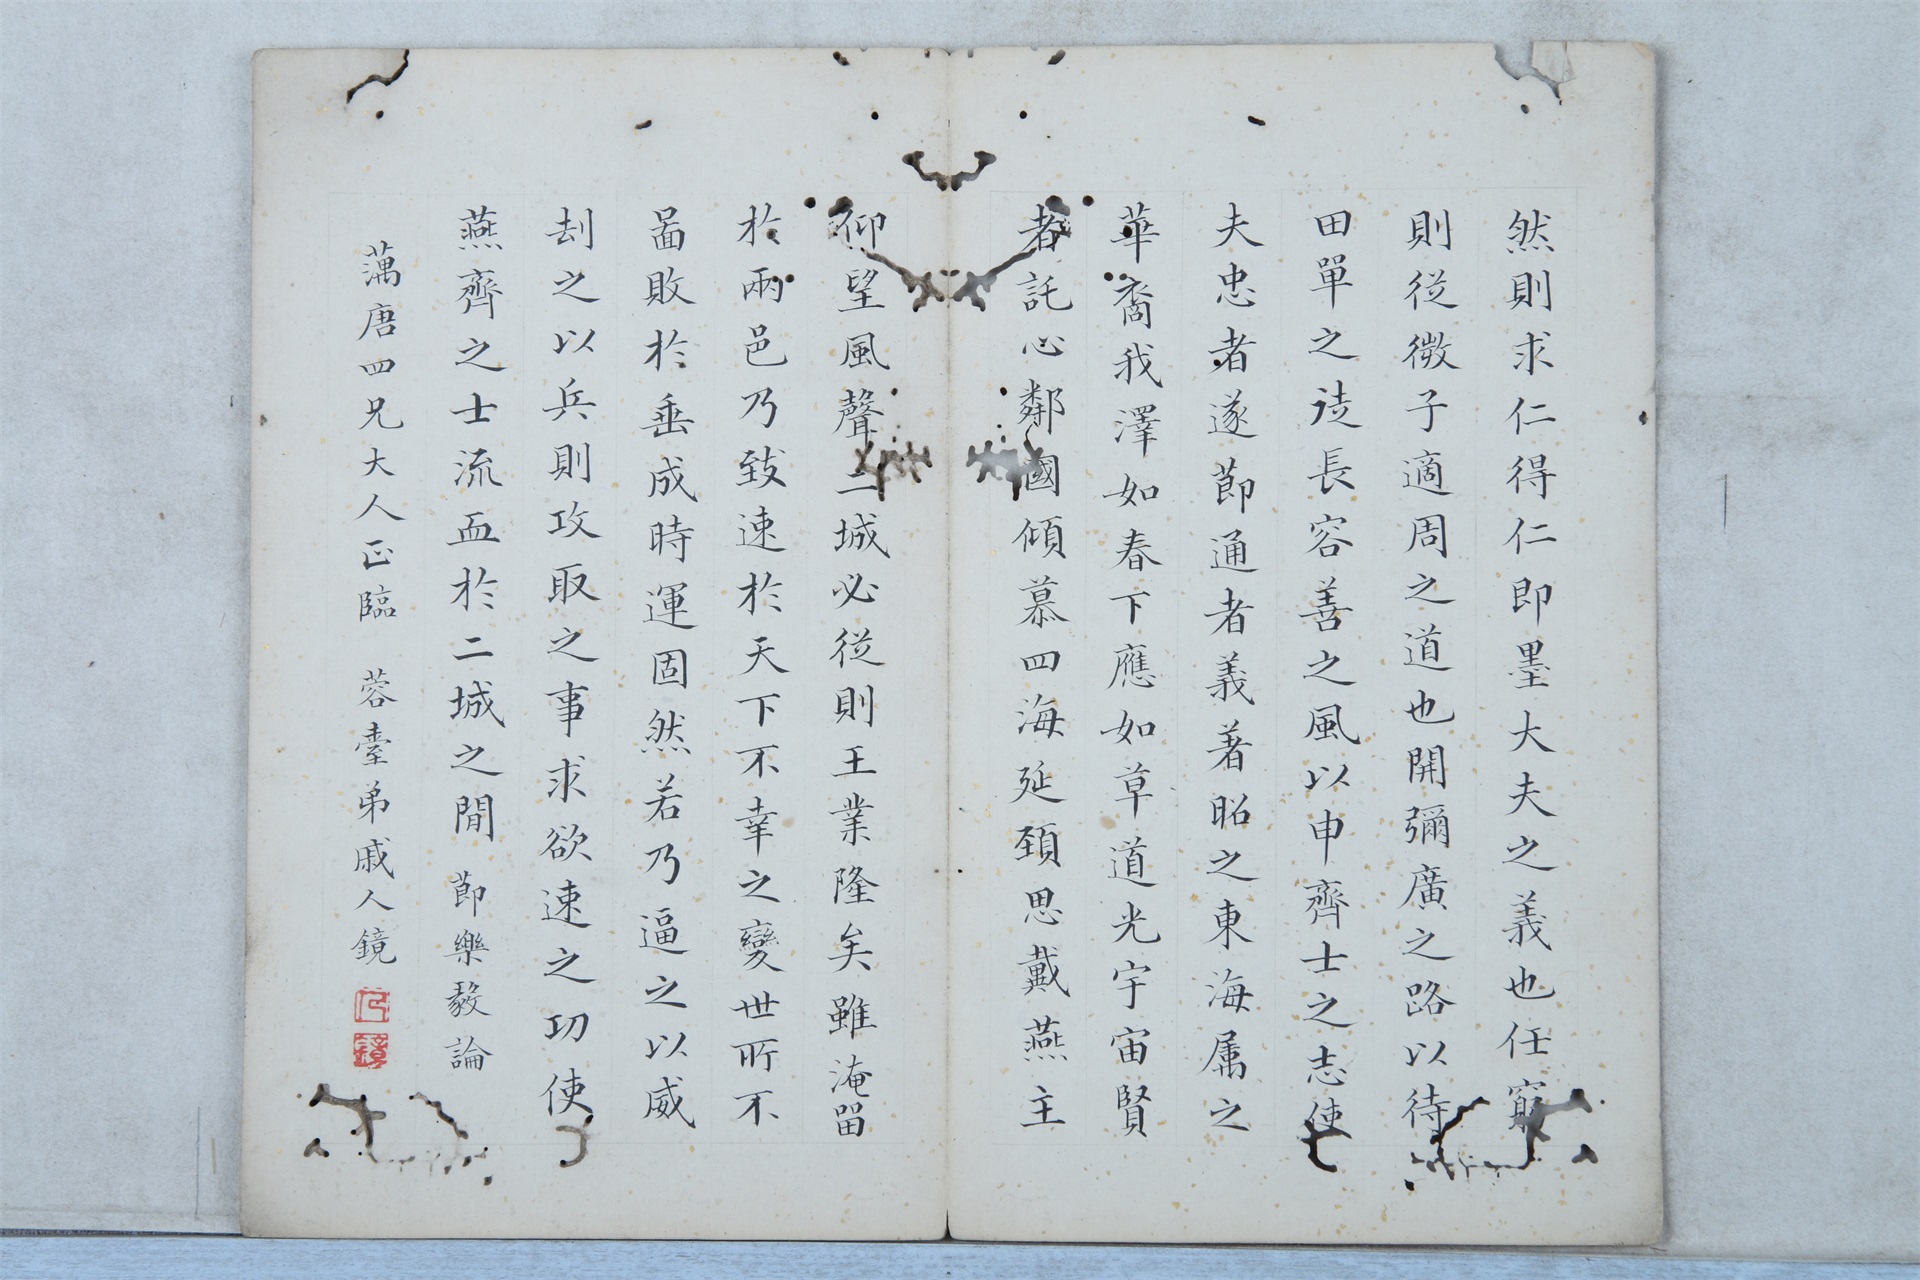 然則求仁得仁即墨大夫之義也任窮
則從微子適周之道也開彌廣之路以待
田單之徒長容善之風以申齊士之志使
夫忠者遂節通者義著昭之東海属之
華裔我澤如春下應如草道光宇宙賢
者託心鄰國傾慕四海延頸思戴燕主
仰望風聲二城必從則王業隆矣雖淹留
於兩邑乃致速於天下不幸之變世所不
啚敗於垂成時運固然若乃逼之以威
刦之以兵則攻取之事求欲速之功使
燕齊之士流血於二城之間 節樂毅論
藕唐四兄大人正臨 蓉臺弟戚人鏡
人鏡